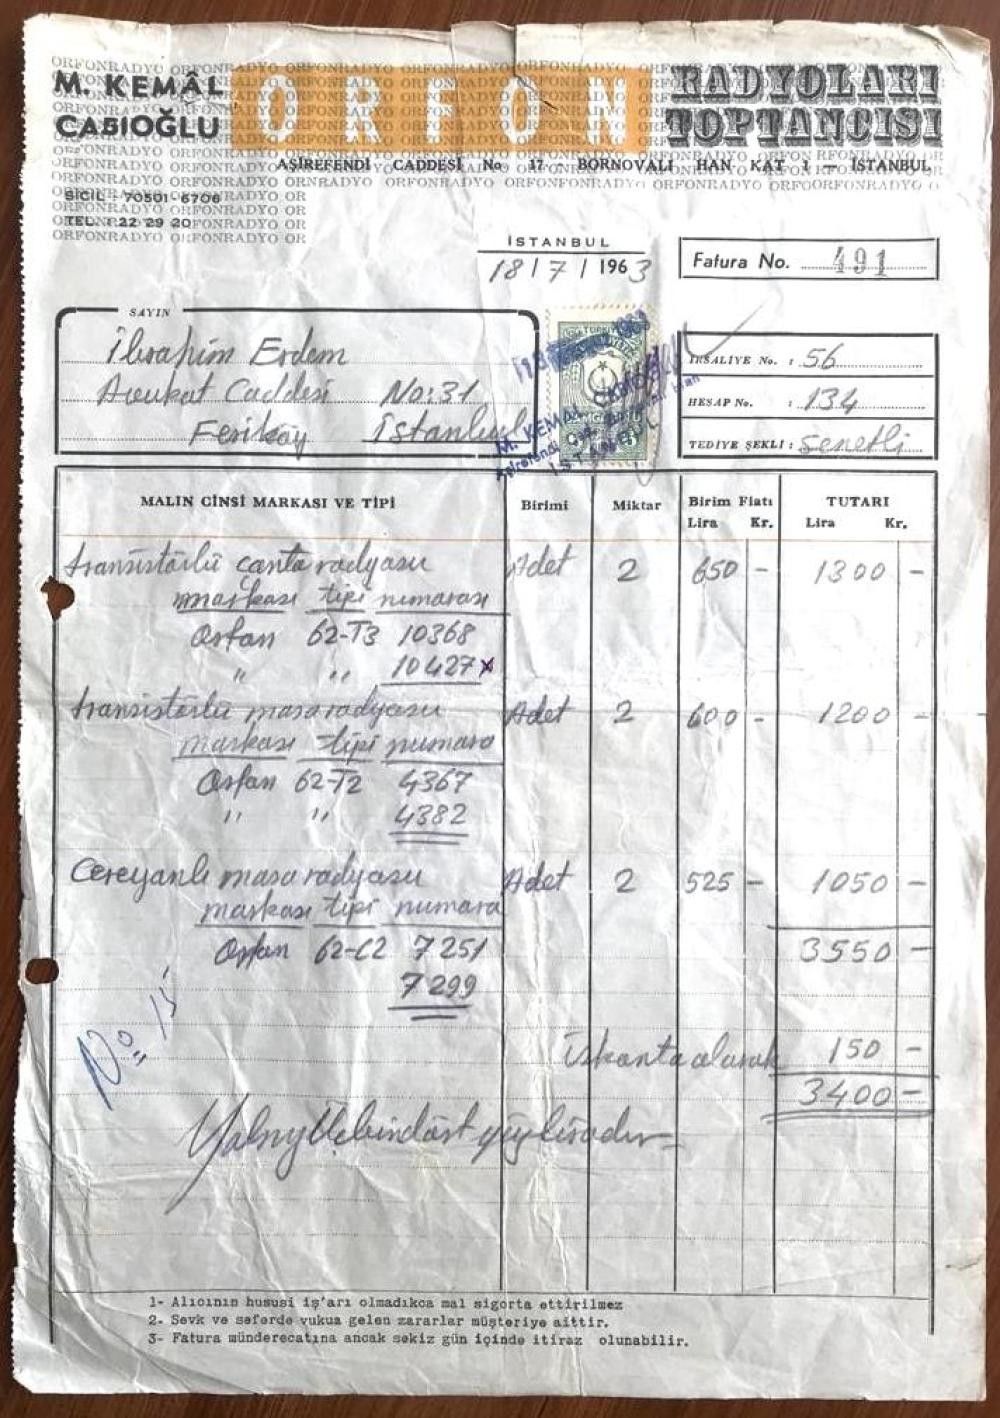 M. KEMÂL
CABIOĞLU
ORFON
RADYOLARI
TOPTANCISI
AŞİREFENDİ CADDESİ No 17. BORNOVALI HAN KAT 1 - İSTANBUL
SİCİL : 70501-6706
TEL. : 22 29 20
İSTANBUL
18/7/1963
Fatura No. 491
SAYIN
İbrahim Erdem
Avukat Caddesi No:31
Feriköy İstanbul
İRSALİYE No. : 56
HESAP No. : 134
TEDİYE ŞEKLİ : Senetli
M. KEMAL
İSTANBUL
MALIN CİNSİ MARKASI VE TİPİ Birimi Miktar Birim Fiatı TUTARI
Lira Kr. Lira Kr.
transistörlü çanta radyosu Adet 2 650 - 1300 -
markası tipi numarası
Orfon 62-T3 10368
" " 10427
transistörlü masa radyosu Adet 2 600 - 1200 -
markası tipi numara
Orfon 62-T2 4367
" " 4382
Cereyanlı masa radyosu Adet 2 525 - 1050 -
markası tipi numara
Orfon 62-C2 7251 3550 -
7299
No: 15
iskonto olarak 150 -
3400 -
Yalnız Üçbindört yüz liradır
1- Alıcının hususi iş'arı olmadıkca mal sigorta ettirilmez
2- Sevk ve seferde vukua gelen zararlar müşteriye aittir.
3- Fatura münderecatına ancak sekiz gün içinde itiraz olunabilir.